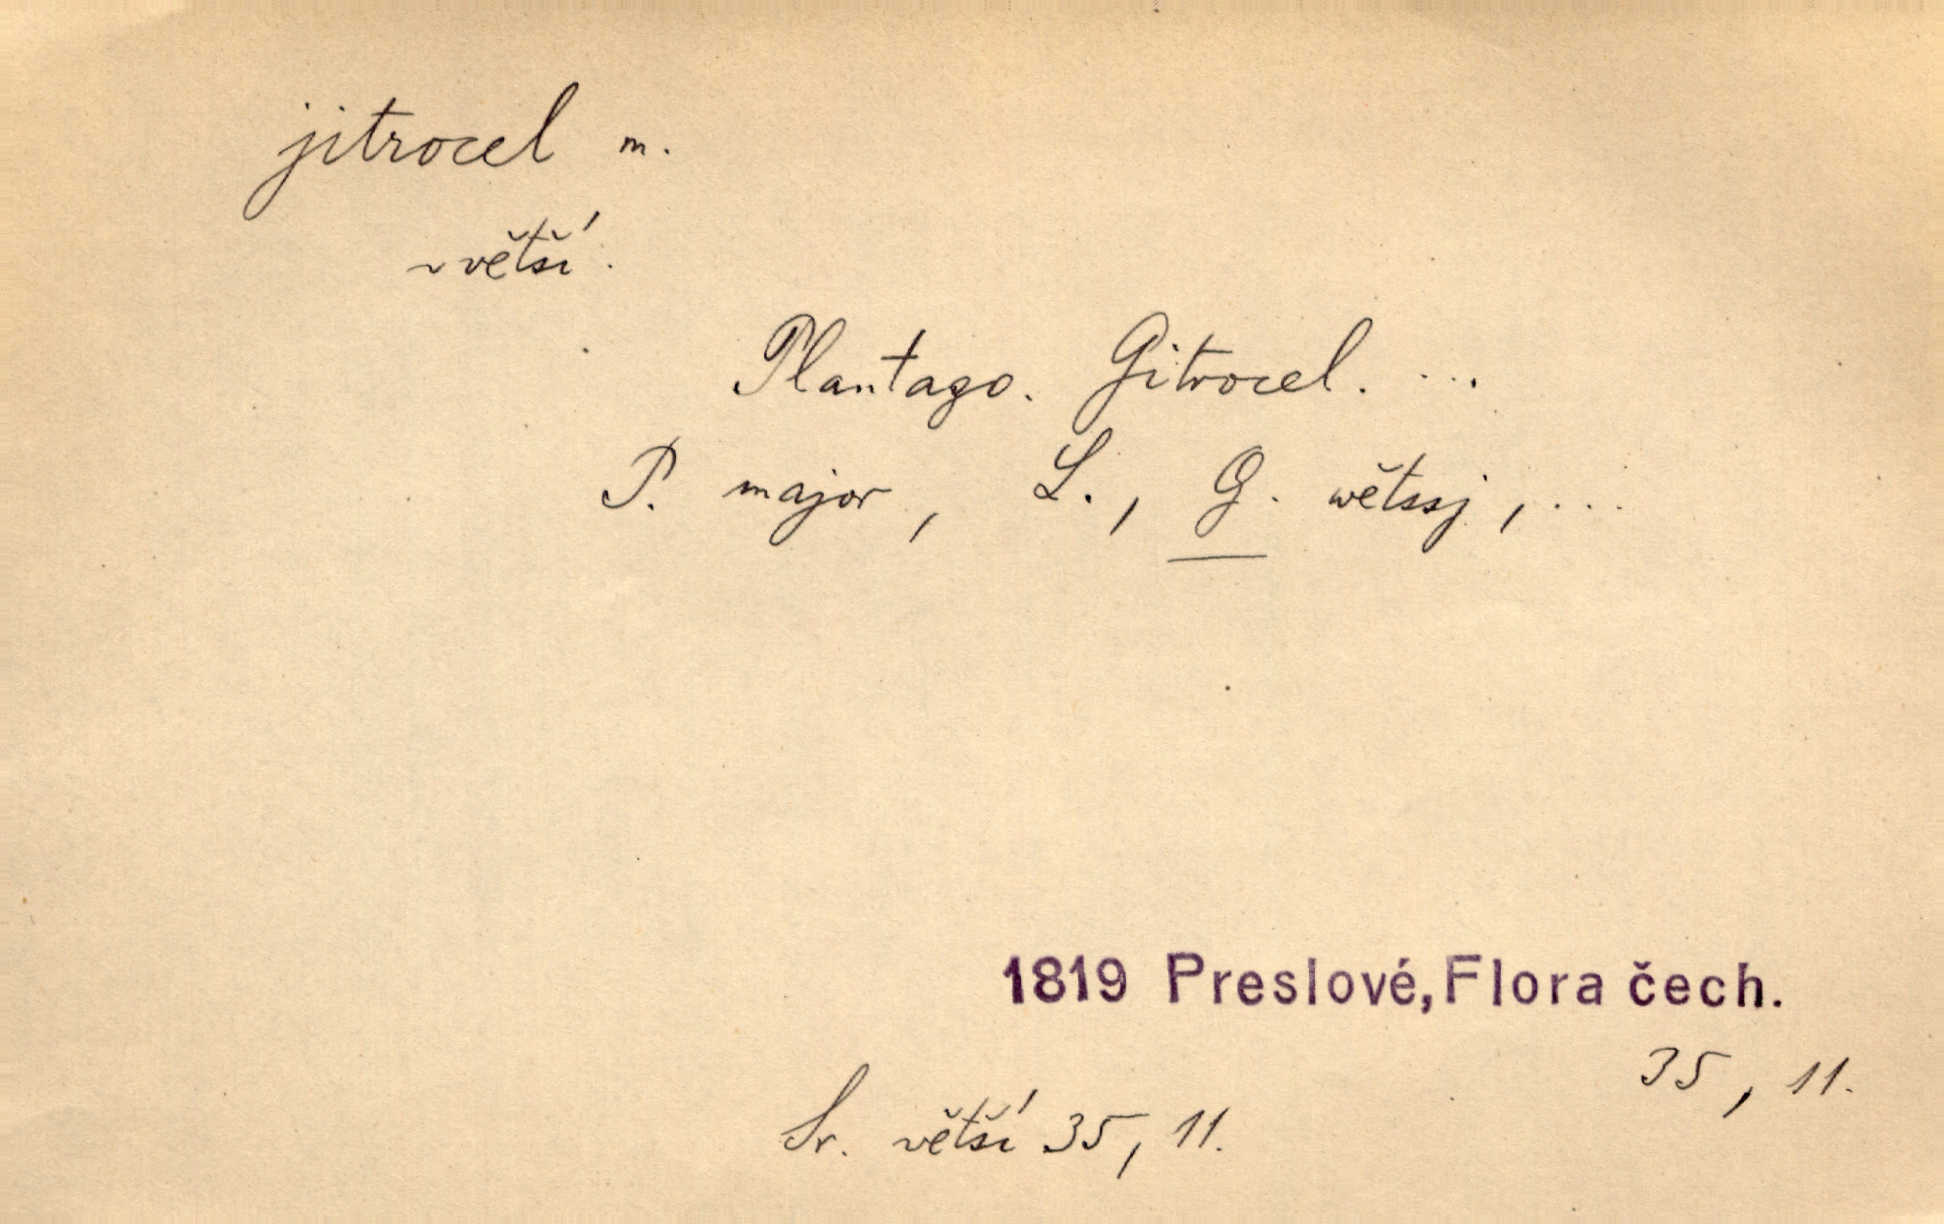 jitrocel m.
~ větší.
Plantago. Gitrocel. ...
P. major, L., G. wětssj, ...
1819 Preslové, Flora čech.
35, 11.
Sr. větší 35, 11.